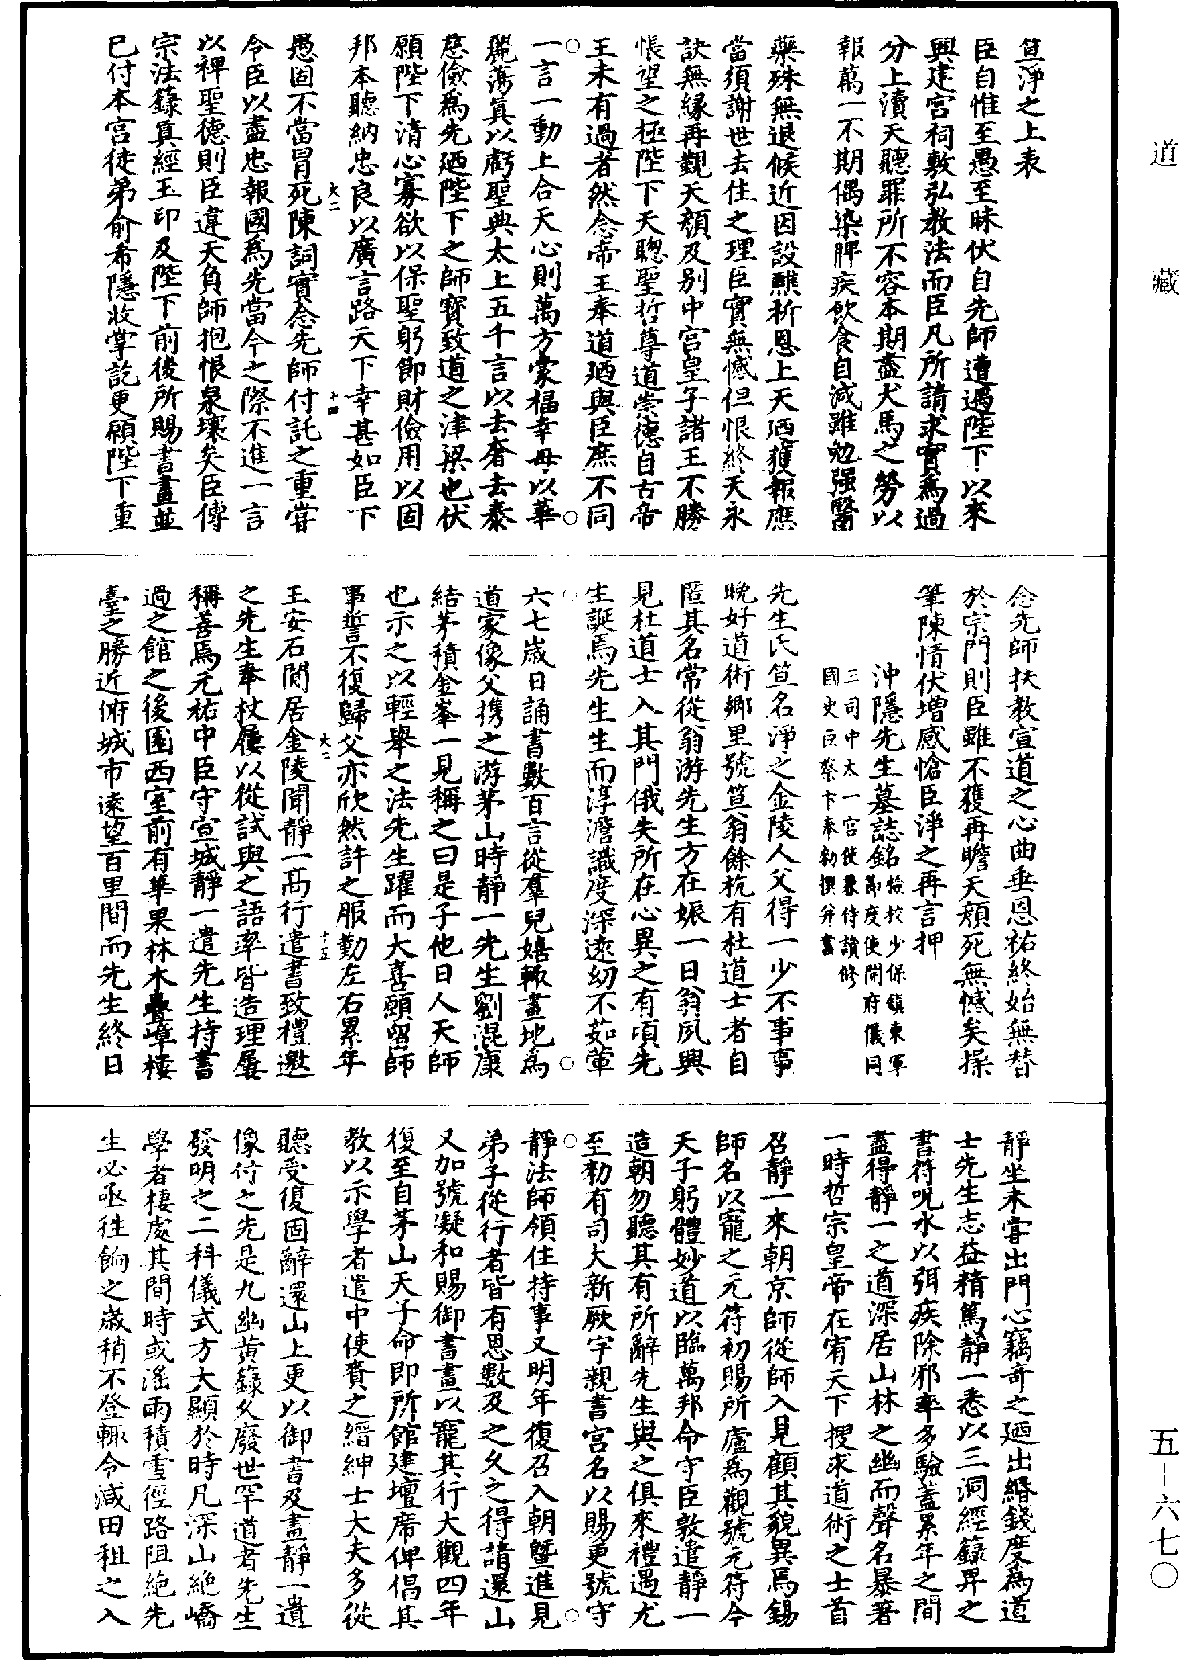 道藏
五—六七〇
笪淨之上表
臣自惟至愚至昧伏自先師遭遇陛下以來
興建宮祠敷弘教法而臣凡所請求實為過
分上瀆天聽罪所不容本期盡犬馬之勞以
報萬一不期偶染脾疾飲食自減雖勉强醫
藥殊無退候近因設醮祈恩上天廼獲報應
當須謝世去住之理臣實無憾但恨終天永
訣無緣再覲天顏及別中宮皇子諸王不勝
悵望之極陛下天聰聖哲尊道崇德自古帝
王未有過者然念帝王奉道廼與臣庶不同
一言一動上合天心則萬方蒙福幸毋以華
麗蕩真以虧聖典太上五千言以去奢去泰
慈儉為先廼陛下之師寶致道之津梁也伏
願陛下清心寡欲以保聖躬節財儉用以固
邦本聽納忠良以廣言路天下幸甚如臣下
大二 十四
愚固不當冒死陳詞實念先師付託之重嘗
令臣以盡忠報國為先當今之際不進一言
以裨聖德則臣違天負師抱恨泉壤矣臣傳
宗法籙真經玉印及陛下前後所賜書畫並
已付本宮徒弟俞希隱收掌訖更願陛下重
念先師扶教宣道之心曲垂恩祐終始無替
於宗門則臣雖不獲再瞻天顏死無憾矣操
筆陳情伏增感愴臣淨之再言押
沖隱先生墓誌銘檢校少保鎮東軍
節度使開府儀同
三司中太一宮使兼侍讀修
國史臣蔡卞奉勑撰并書
先生氏笪名淨之金陵人父得一少不事事
晚好道術鄉里號笪翁餘杭有杜道士者自
匿其名常從翁游先生方在娠一日翁夙興
見杜道士入其門俄失所在心異之有頃先
生誕焉先生生而淳澹識度深遠幼不茹葷
六七歲日誦書數百言從羣兒嬉輒畫地為
道家像父携之游茅山時靜一先生劉混康
結茅積金峯一見稱之曰是子他日人天師
也示之以輕舉之法先生躍而大喜願留師
事誓不復歸父亦欣然許之服勤左右累年
大二 十五
王安石閒居金陵聞靜一高行遣書致禮邀
之先生奉杖屨以從試與之語率皆造理屢
稱善焉元祐中臣守宣城靜一遣先生持書
過之館之後園西室前有華果林木疊嶂樓
臺之勝近俯城市遠望百里間而先生終日
靜坐未甞出門心竊奇之廼出緡錢度為道
士先生志益精篤靜一悉以三洞經籙畀之
書符呪水以弭疾除邪率多驗蓋累年之間
盡得靜一之道深居山林之幽而聲名暴著
一時哲宗皇帝在宥天下搜求道術之士首
召靜一來朝京師從師入見顧其貌異焉錫
師名以寵之元符初賜所廬為觀號元符今
天子躬體妙道以臨萬邦命守臣敦遣靜一
造朝勿聽其有所辭先生與之俱來禮遇尤
至勑有司大新厥宇親書宮名以賜更號守
靜法師領住持事又明年復召入朝暨進見
弟子從行者皆有恩數及之久之得請還山
又加號凝和賜御書畫以寵其行大觀四年
復至自茅山天子命即所館建壇席俾倡其
教以示學者遣中使賚之縉紳士大夫多從
聽受復固辭還山上更以御書及畫靜一遺
像付之先是九幽黃籙久廢世罕道者先生
發明之二科儀式方大顯於時凡深山絶嶠
學者棲處其間時或滛雨積雪徑路阻絶先
生必亟往餉之歲稍不登輒令減田租之入